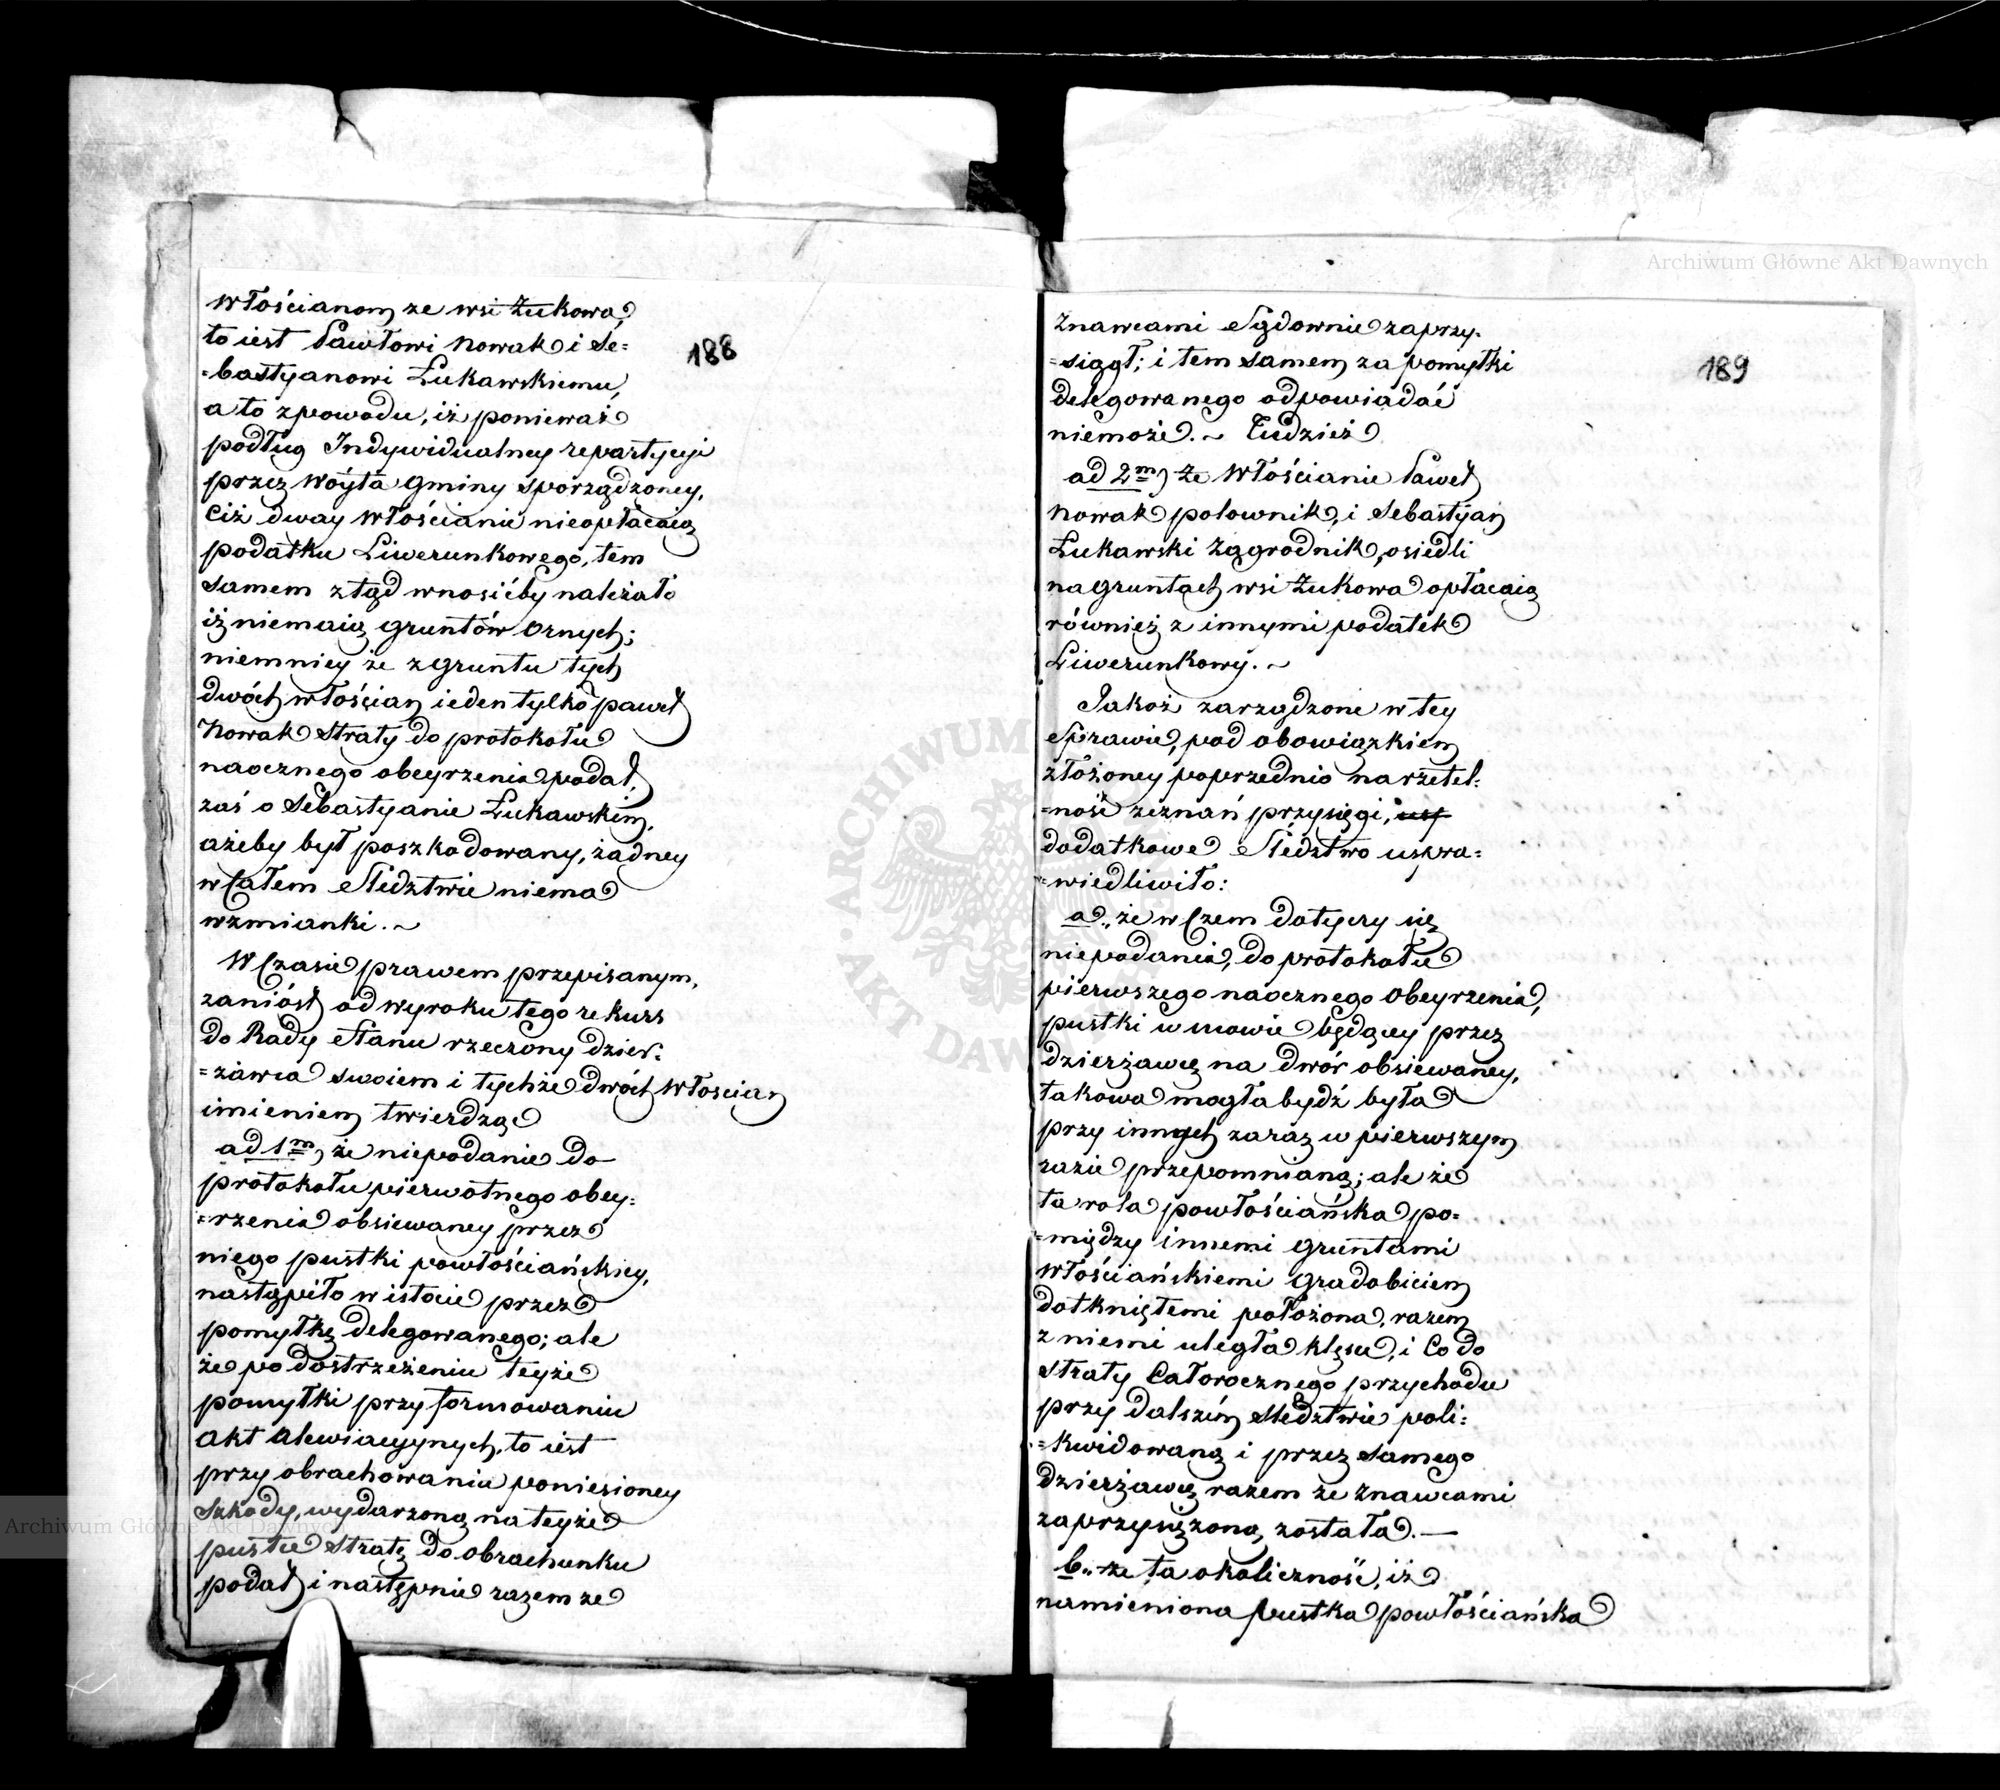 188
Włościanom ze wsi Żukowa,
to iest Pawłowi Nowak i Se=
=bastyanowi Łukawskiemu,
a to z powodu, iż ponieważ
podług Indywidualney repartycyi
przez Wóyta gminy sporządzoney,
Ciż dway Włościanie nieopłacaią
podatku Liwerunkowego, tem
samem ztąd wnosićby należało
iż niemaią gruntów Ornych;
niemniey że z gruntu tych
dwóch włościan ieden tylko paweł
Nowak Straty do protokołu
naocznego obeyrzenia podał,
zaś o Sebastyanie Łukawskim,
ażeby był poszkodowany, żadney
w Całem Śledztwie niema
wzmianki. ~
W Czasie prawem przepisanym,
zaniósł od wyroku tego rekurs
do Rady Stanu rzeczony dzier=
=żawca swoiem i tychże dwóch Włościan
imieniem twierdząc
ad 1m, że niepodanie do
protokołu pierwotnego obey=
=rzenia obsiewaney przez
niego pustki powłościańskiey,
nastąpiło w istocie przez
pomyłkę delegowanego; ale
że po dostrzeżeniu teyże
pomyłki przy formowaniu
akt alewiacyynych, to iest
przy obrachowaniu poniesioney
Szkody, wydarzoną na teyże
pustce Stratę do obrachunku
podał i następnie razem ze
189
Znawcami Sądownie zaprzy=
=siągł; i tem samem za pomyłki
delegowanego odpowiadać
niemoże. ~ Tudzież
ad 2m, że Włościanie Paweł
Nowak polownik, i Sebastyan
Łukawski Zagrodnik, osiedli
na gruntach wsi Żukowa opłacaią
również z innymi podatek
Liwerunkowy. ~
Jakoż zarządzone w tey
Sprawie, pod obowiązkiem
złożoney poprzednio na rzetel=
=ność zeznań przysięgi,
dodatkowe Śledztwo uspra=
=wiedliwiło:
a., że w Czem dotyczy się
niepodania, do protokołu
pierwszego naocznego obeyrzenia,
pustki w mowie będącey przez
dzierżawcę na dwór obsiewaney,
takowa mogła bydź była
przy innych zaraz w pierwszym
razie przepomnianą; ale że
ta rola powłościańska po=
=między innemi gruntami
Włościańskiemi gradobiciem
dotkniętemi położona, razem
z niemi uległa klęsce, i Co do
Straty Całorocznego przychodu
przy dalszém Śledztwie poli=
=kwidowaną i przez samego
dzierżawcę razem ze znawcami
zaprzysiężoną została. —
b., że ta okoliczność, iż
namieniona pustka powłościańska
Archiwum Główne Akt Dawnych
Archiwum Główne Akt Dawnych